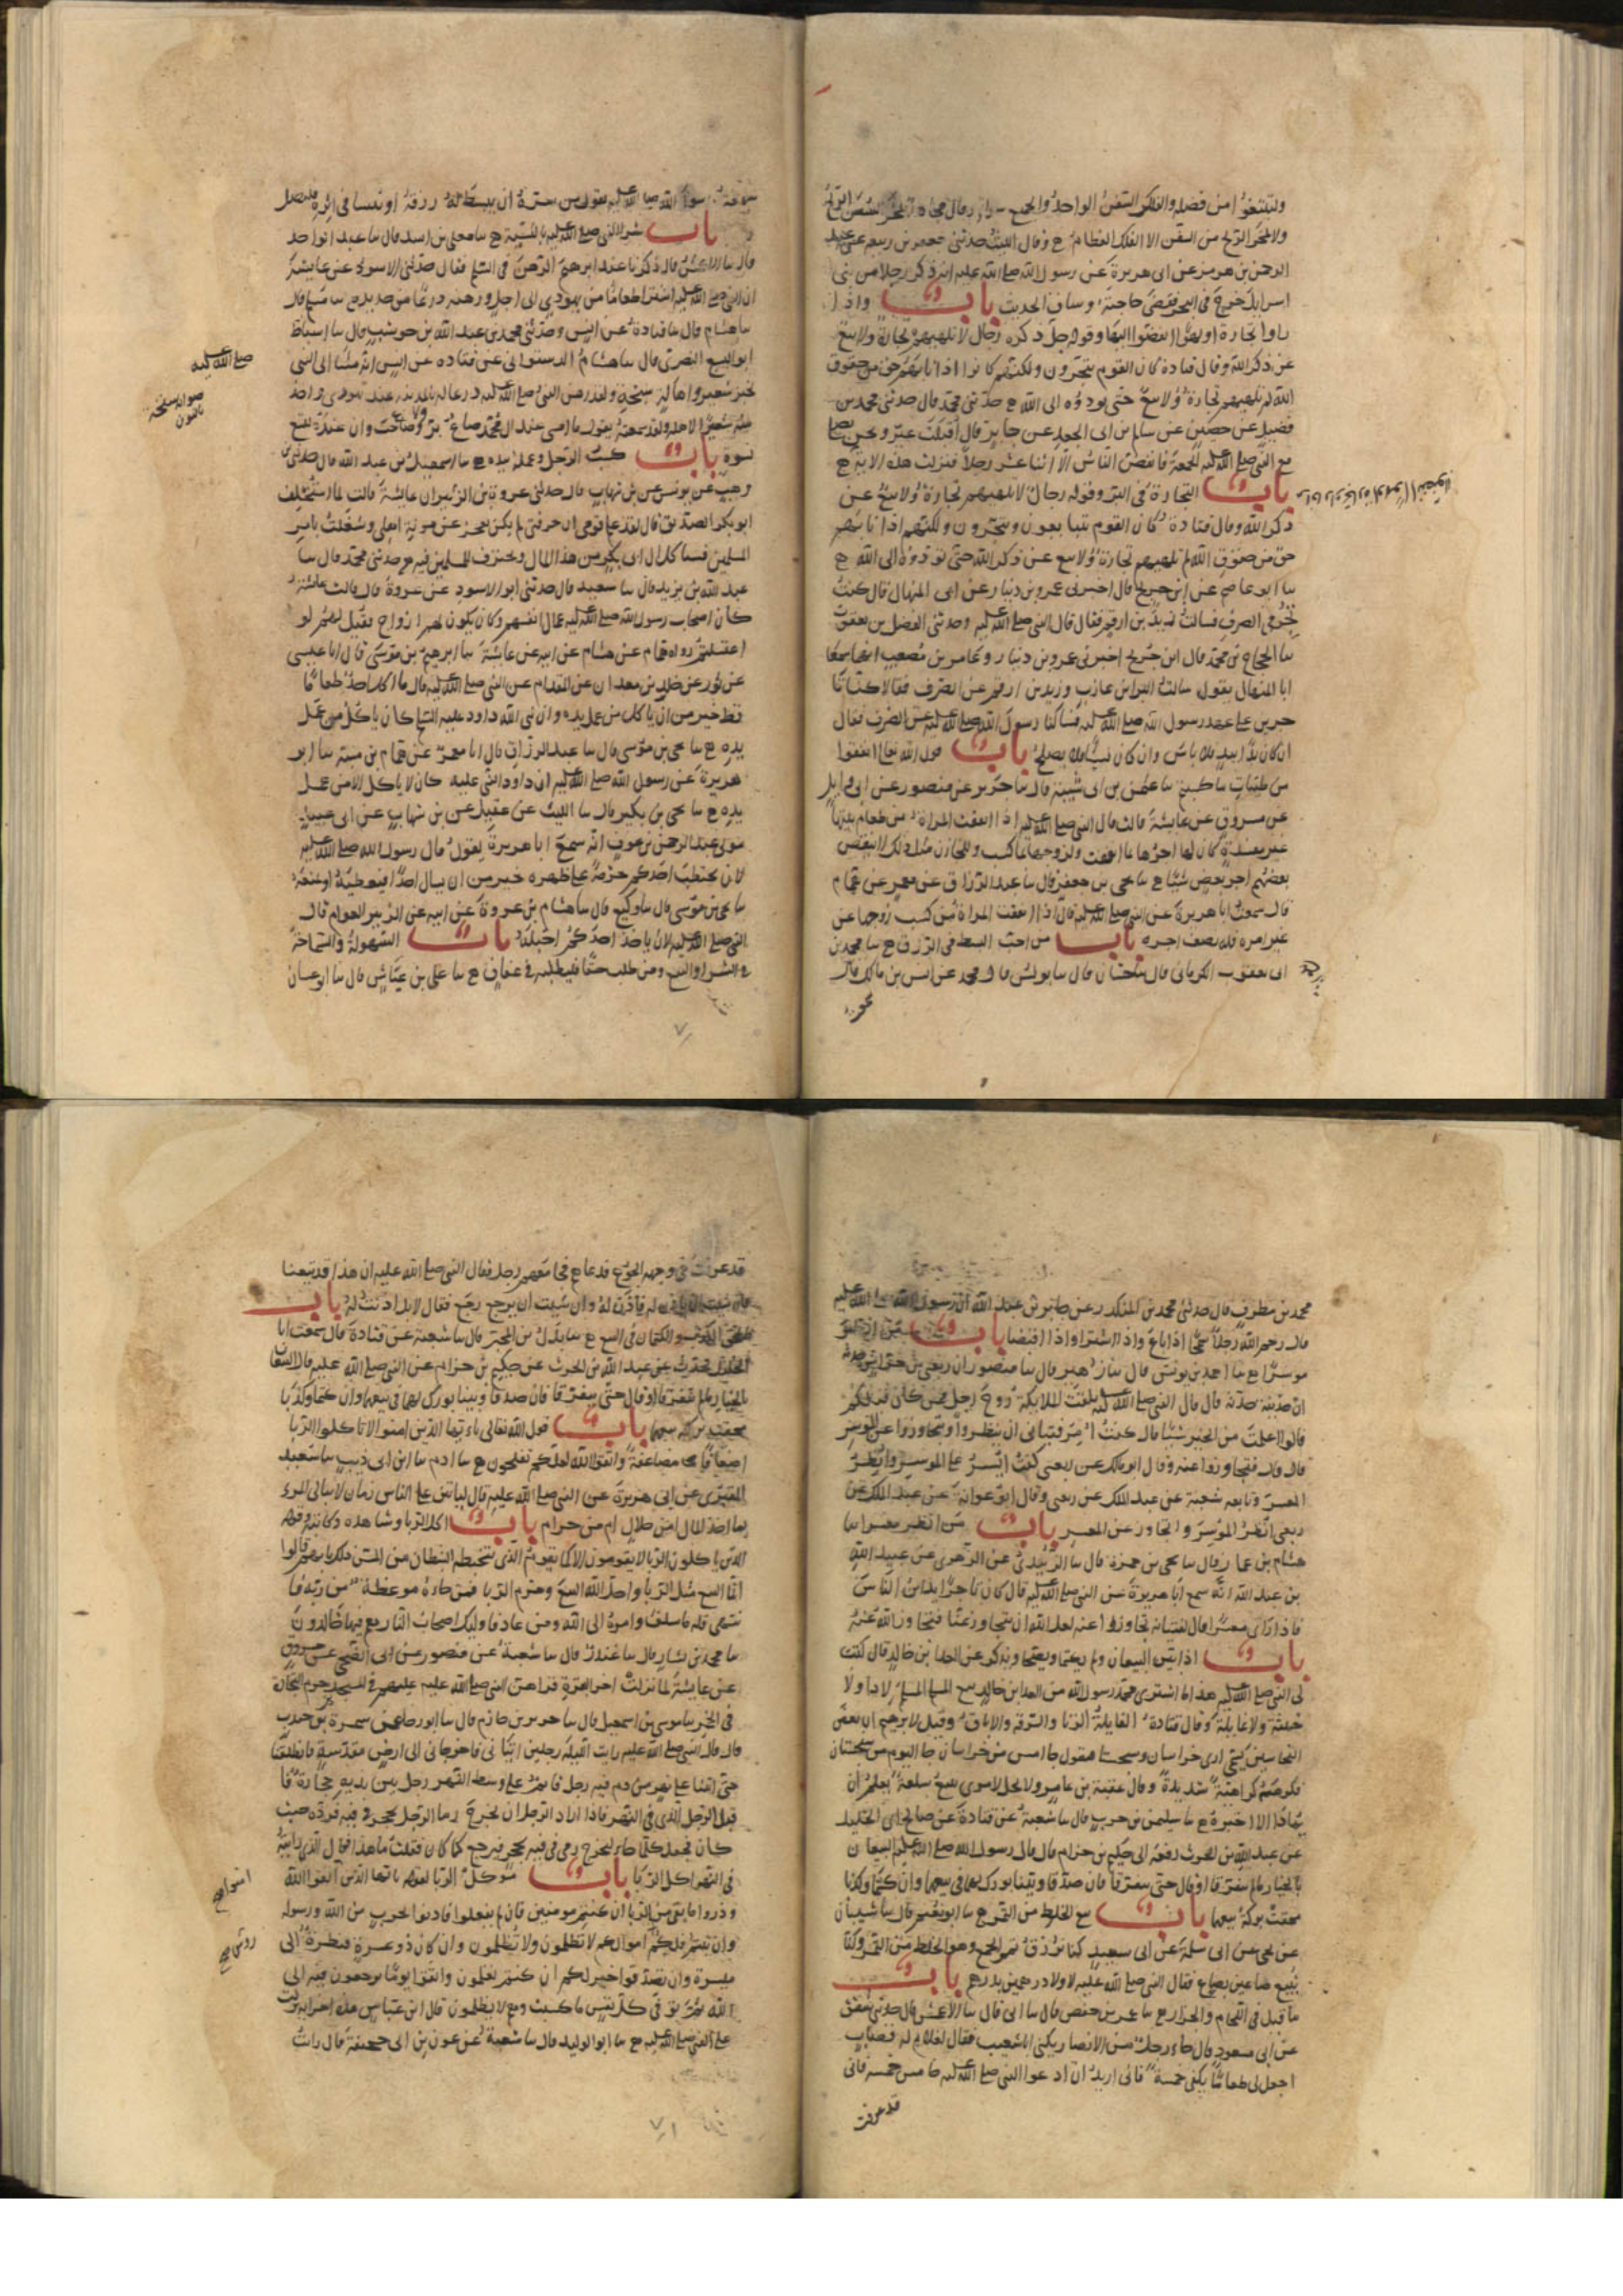 ولتبتغوا من فضله والفلك السفن الواحد والجمع سواء وقال مجاهد تمخر السفن الريح
ولا تمخر الريح من السفن الا الفلك العظام ح وقال الليث حدثني جعفر بن ربيعه عن عبد
الرحمن بن هرمز عن ابي هريرة عن رسول الله صلى الله عليه انه ذكر رجلا من بني
اسرايل خرج في البحر فقضى حاجته وساق الحديث باب واذا
راوا تجارة او لهوا انفضوا اليها وقوله جل ذكره رجال لا تلهيهم تجارة ولا بيع
عن ذكر الله وقال قتادة كان القوم يتجرون ولكنهم كانوا اذا نابهم حق من حقوق
الله لم تلهيهم تجارة ولا بيع حتى يودوه الى الله ح حدثني محمد قال حدثني محمد بن
فضيل عن حصين عن سالم بن ابي الجعد عن جابر قال اقبلت عير ونحن نصلي
مع النبي صلى الله عليه الجمعة فانفض الناس الا اثنا عشر رجلا فنزلت هذه الاية ح
باب التجارة في البر وقوله رجال لا تلهيهم تجارة ولا بيع عن
ذكر الله وقال قتادة كان القوم يتبايعون ويتجرون ولكنهم اذا نابهم
حق من حقوق الله لم تلهيهم تجارة ولا بيع عن ذكر الله حتى يودوه الى الله ح
سا ابو عاصم عن ابن جريج قال اخبرني عمرو بن دينار عن ابي المنهال قال كنت
اتجر في الصرف فسالت زيد بن ارقم فقال قال النبي صلى الله عليه وحدثني الفضل بن يعقوب
سا الحجاج بن محمد قال ابن جريج اخبرني عمرو بن دينار وعامر بن مصعب انهما سمعا
ابا المنهال يقول سالت البرا بن عازب وزيد بن ارقم عن الصرف فقالا كنا تا
جرين على عهد رسول الله صلى الله عليه فسالنا رسول الله صلى الله عليه عن الصرف فقال
ان كان يدا بيد فلا باس وان كان نسا فلا يصلح باب قول الله تعالى انفقوا
من طيبات ما كسبتم سا عثمن بن ابي شيبة قال سا جرير عن منصور عن ابي وايل
عن مسروق عن عايشة قالت قال النبي صلى الله عليه اذا انفقت المراة من طعام بيتها
غير مفسدة كان لها اجرها بما انفقت ولزوجها بما كسب وللخازن مثل ذلك لا ينقص
بعضهم اجر بعض شيا ح سا يحيى بن جعفر قال سا عبد الرزاق عن معمر عن همام
قال سمعت ابا هريرة عن النبي صلى الله عليه قال اذا انفقت المراة من كسب زوجها عن
غير امره فله نصف اجره باب من احب البسط في الرزق ح سا محمد بن
ابي يعقوب الكرماني قال سا حسان قال سا يونس قال محمد عن انس بن مالك قال
سمعت رسول الله صلى الله عليه يقول من سره ان يبسط له رزقه او ينسا في اثره فليصل
باب شرا النبي صلى الله عليه بالنسية ح سا معلى بن اسد قال سا عبد الواحد
قال سا الاعمش قال ذكرنا عند ابرهيم الرهن في السلم فقال حدثني الاسود عن عايشة
ان النبي صلى الله عليه اشترا طعاما من يهودي الى اجل ورهنه درعا من حديد ح سا مسلم قال
سا هشام قال سا قتادة عن انس وحدثني محمد بن عبد الله بن حوشب قال سا اسباط
ابو اليسع البصري قال سا هشام الدستوائي عن قتاده عن انس انه مشا الى النبي
صلى الله عليه
بخبز شعير واهالة سنخة ولقد رهن النبي صلى الله عليه درعا له بالمدينة عند يهودي واخذ
منه شعيرا لاهله ولقد سمعته يقول ما امسى عند ال محمد صاع بر ولا صاع حب وان عنده لتسع
نسوة باب كسب الرجل وعمله بيده ح سا اسمعيل بن عبد الله قال حدثني
وهب عن يونس عن بن شهاب قال حدثني عروة بن الزبير ان عايشة قالت لما استخلف
ابو بكر الصديق قال لقد علم قومي ان حرفتي لم تكن تعجز عن مونة اهلي وشغلت بامر
المسلمين فسياكل ال ابي بكر من هذا المال ويحترف للمسلمين فيه ح حدثني محمد قال سا
عبد الله بن يزيد قال سا سعيد قال حدثني ابو الاسود عن عروة قال قالت عائشة
كان اصحاب رسول الله صلى الله عليه عمال انفسهم وكان يكون لهم ارواح فقيل لهم لو
اغتسلتم رواه همام عن هشام عن ابيه عن عايشة سا ابرهيم بن موسى قال انا عيسى
عن ثور عن خالد بن معدان عن المقدام عن النبي صلى الله عليه قال ما اكل احد طعاما
قط خير من ان ياكل من عمل يده وان نبي الله داود عليه السلم كان ياكل من عمل
يده ح سا يحيى بن موسى قال سا عبد الرزاق قال انا معمر عن همام بن منبه سا ابو
هريرة عن رسول الله صلى الله عليه ان داود النبي عليه كان لا ياكل الا من عمل
يده ح سا يحيى بن بكير قال سا الليث عن عقيل عن بن شهاب عن ابي عبيد
مولى عبد الرحمن بن عوف انه سمع ابا هريرة يقول قال رسول الله صلى الله عليه
لان يحتطب احدكم حزمة على ظهره خير من ان يسال احدا فيعطيه او يمنعه
سا يحيى بن موسى قال سا وكيع قال سا هشام بن عروة عن ابيه عن الزبير العوام قال
النبي صلى الله عليه لان ياخذ احدكم احبله باب السهولة والسماحة
في الشرا والبيع ومن طلب حقا فليطلبه في عفاف ح سا علي بن عياش قال سا ابو غسان
محمد بن مطرف قال حدثني محمد بن المنكدر عن جابر بن عبد الله ان رسول الله صلى الله عليه
قال رحم الله رجلا سمحا اذا باع واذا اشترا واذا اقتضا باب من انظر
موسرا ح سا احمد بن يونس قال سا زهير قال سا منصور ان ربعي بن حراش حدثه
ان حذيفة حدثه قال قال النبي صلى الله عليه تلقت الملايكة روح رجل ممن كان قبلكم
قالوا اعملت من الخير شيا قال كنت امر فتياني ان ينظروا ويتجاوزوا عن الموسر
قال قال فتجاوزوا عنه وقال ابو مالك عن ربعي كنت ايسر على الموسر وانظر
المعسر وتابعه شعبة عن عبد الملك عن ربعي وقال ابو عوانة عن عبد الملك عن
ربعي انظر الموسر واتجاوز عن المعسر باب من انظر معسرا سا
هشام بن عمار قال سا يحيى بن حمزة قال سا الزبيدي عن الزهري عن عبيد الله
بن عبد الله انه سمع ابا هريرة عن النبي صلى الله عليه قال كان تاجر يداين الناس
فاذا راى معسرا قال لفتيانه تجاوزوا عنه لعل الله ان يتجاوز عنا فتجاوز الله عنه
باب اذا بين البيعان ولم يكتما ونصحا ويذكر عن العدا بن خالد قال كتب
لي النبي صلى الله عليه هذا ما اشترى محمد رسول الله من العدا بن خالد بيع المسلم المسلم لا داء ولا
خبثة ولا غايلة وقال قتادة الغايلة الزنا والسرقه والاباق وقيل لابرهيم ان بعض
النخاسين يسمي اري خراسان وسجستان فيقول جا امس من خراسان جا اليوم من سجستان
فكرهه كراهية شديدة وقال عقبة بن عامر ولا يحل لامري يبيع سلعة يعلم ان
بها داء الا اخبره ح سا سليمن بن حرب قال سا شعبة عن قتادة عن صالح ابي الخليل
عن عبد الله بن الحرث رفعه الى حكيم بن حزام قال قال رسول الله صلى الله عليه البيعان
بالخيار ما لم يتفرقا او قال حتى يتفرقا فان صدقا وبينا بورك لهما في بيعهما وان كتما وكذبا
محقت بركة بيعهما باب بيع الخلط من التمر ح سا ابو نعيم قال سا شيبان
عن يحيى عن ابي سلمة عن ابي سعيد كنا نرزق تمر الجمع وهو الخلط من التمر وكنا
نبيع صاعين بصاع فقال النبي صلى الله عليه لا ولا درهمين بدرهم باب
ما قيل في اللحام والجزار ح سا عمر بن حفص قال سا ابي قال سا الاعمش قال حدثني شقيق
عن ابي مسعود قال جاء رجل من الانصار يكنى ابا شعيب فقال لغلام له قصاب
اجعل لي طعاما يكفي خمسة فاني اريد ان ادعوا النبي صلى الله عليه خامس خمسة فاني
قد عرفت
قد عرفت في وجهه الجوع فدعاهم فجا معهم رجل فقال النبي صلى الله عليه ان هذا قد تبعنا
فان شيت ان تاذن له فاذن له وان شيت ان يرجع رجع فقال لا بل اذنت له باب
ما يمحق الكذب والكتمان في البيع ح سا بدل بن المحبر قال سا شعبة عن قتادة قال سمعت ابا
الخليل يحدث عن عبد الله بن الحرث عن حكيم بن حزام عن النبي صلى الله عليه قال البيعان
بالخيار ما لم يتفرقا او قال حتى يتفرقا فان صدقا وبينا بورك لهما في بيعهما وان كتما وكذبا
محقت بركة بيعهما باب قول الله تعالى ياءيها الذين امنوا لا تاكلوا الربا
اضعافا مضاعفة واتقوا الله لعلكم تفلحون ح سا ادم سا ابن ابي ذيب سا سعيد
المقبري عن ابي هريرة عن النبي صلى الله عليه قال لياتين على الناس زمان لا يبالي المرء
بما اخذ المال امن حلال ام من حرام باب اكل الربا وشاهده وكاتبه وقوله
الذين ياكلون الربا لا يقومون الا كما يقوم الذي يتخبطه الشيطان من المس ذلك بانهم قالوا
انما البيع مثل الربا واحل الله البيع وحرم الربا فمن جاءه موعظة من ربه فا
نتهى فله ما سلف وامره الى الله ومن عاد فاوليك اصحاب النار هم فيها خالدون
سا محمد بن بشار قال سا غندر قال سا شعبة عن منصور عن ابي الضحى عن مسروق
عن عايشة لما نزلت اخر البقرة قراهن النبي صلى الله عليه عليهم في المسجد ثم حرم التجارة
في الخمر سا موسى بن اسمعيل قال سا جرير بن حازم قال سا ابو رجا عن سمرة بن جندب
قال قال النبي صلى الله عليه رايت الليلة رجلين اتياني فاخرجاني الى ارض مقدسة فانطلقنا
حتى اتينا على نهر من دم فيه رجل قايم على وسط النهر رجل بين يديه حجارة فا
قبل الرجل الذي في النهر فاذا اراد الرجل ان يخرج رما الرجل بحجر في فيه فرده حيث
كان فجعل كلما جاء ليخرج رمى في فيه بحجر فيرجع كما كان فقلت ما هذا فقال الذي رايته
في النهر اكل الربا باب موكل الربا لقوله ياايها الذين امنوا اتقوا الله
وذروا ما بقي من الربا ان كنتم مومنين فان لم تفعلوا فاذنوا بحرب من الله ورسوله
وان تبتم فلكم رؤس اموالكم لا تظلمون ولا تظلمون وان كان ذو عسرة فنظرة الى
ميسرة وان تصدقوا خير لكم ان كنتم تعلمون واتقوا يوما ترجعون فيه الى
الله ثم توفى كل نفس ما كسبت وهم لا يظلمون قال ابن عباس هذه اخر اية نزلت
على النبي صلى الله عليه ح سا ابو الوليد قال سا شعبة عن عون بن ابي جحيفة قال رايت